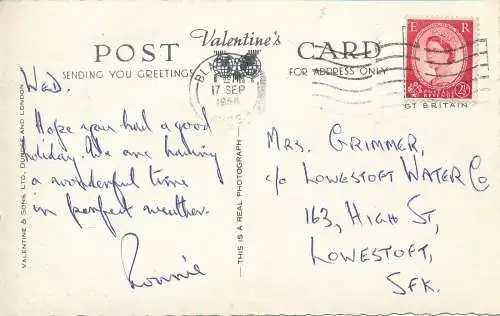 POST Valentine's CARD
SENDING YOU GREETINGS
FOR ADDRESS ONLY
17 SEP
E R
POSTAGE REVENUE
2½
GT BRITAIN
WED.
Hope you had a good
holiday. We are having
a wonderful time
in perfect weather.
Ronnie
VALENTINE & SONS, LTD., DUNDEE AND LONDON
THIS IS A REAL PHOTOGRAPH
MRS. GRIMMER,
c/o LOWESTOFT WATER Co
163, HIGH ST,
LOWESTOFT,
SFK.